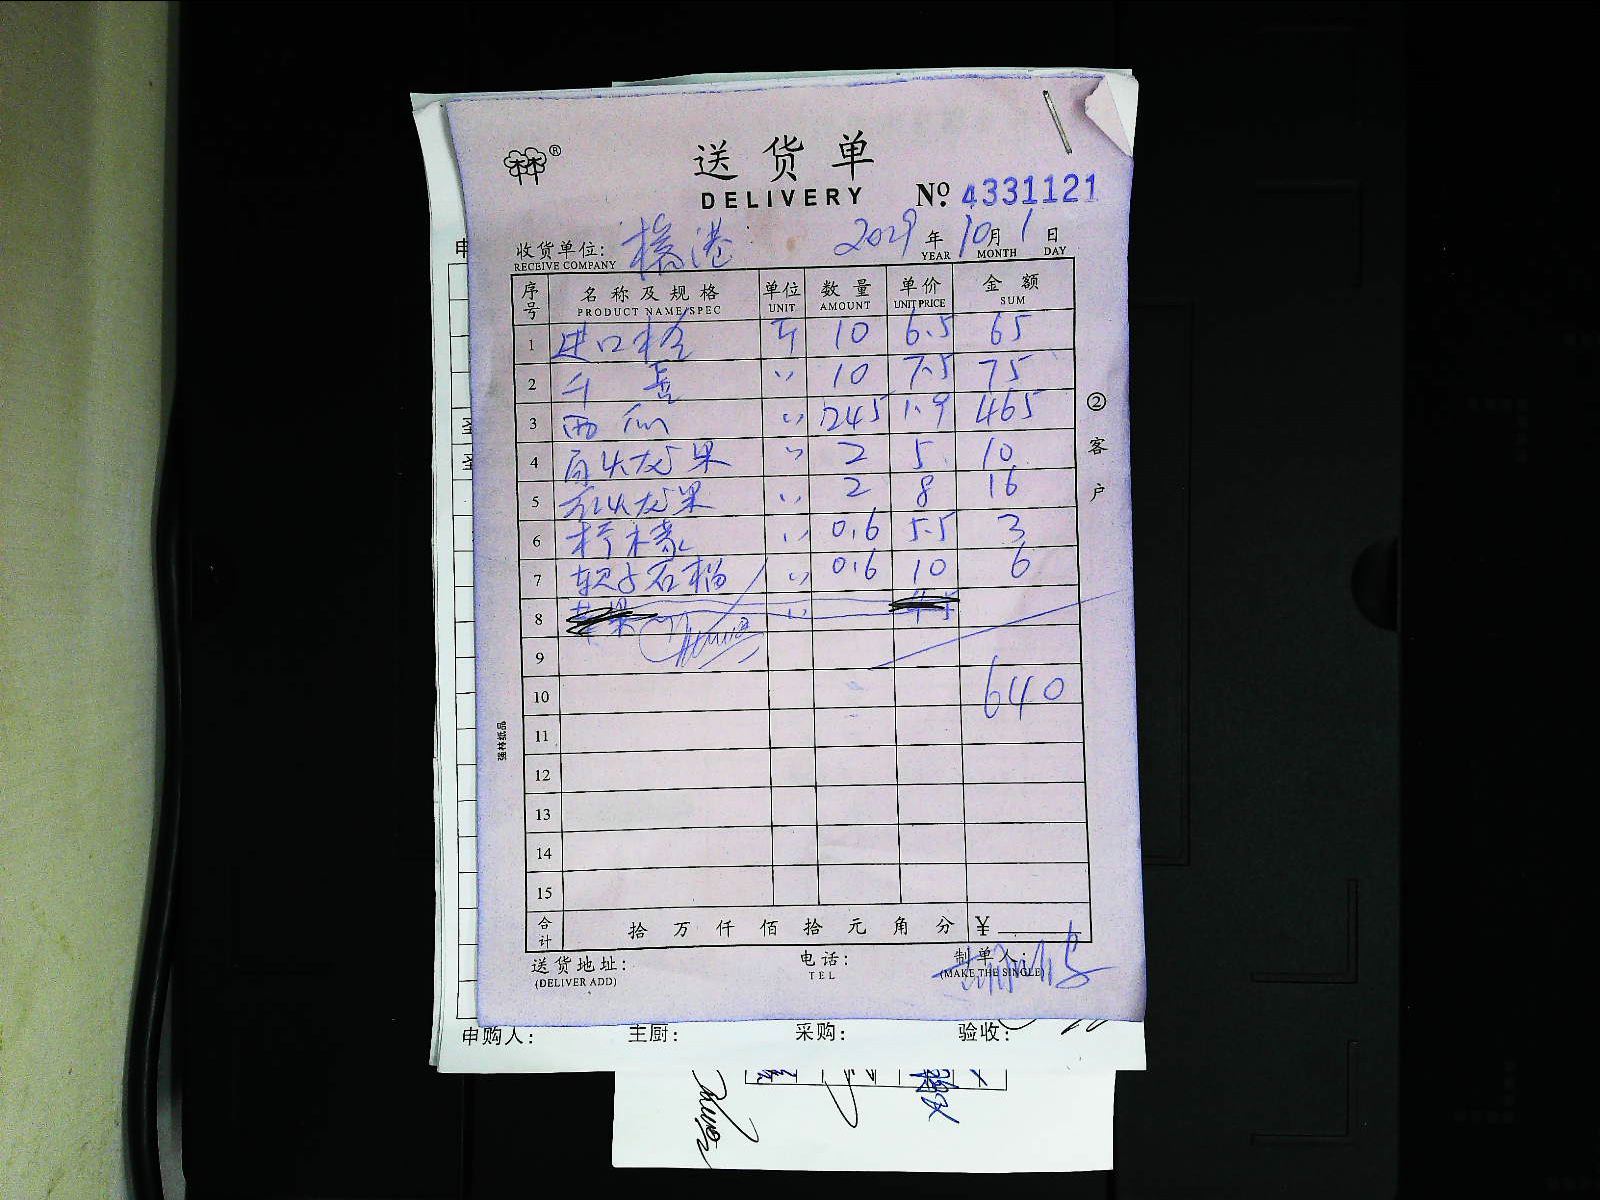 林林®
送货单
DELIVERY No. 4331121
收货单位: 港 2029年10月1日
RECEIVE COMPANY YEAR MONTH DAY
序号 名称及规格 单位 数量 单价 金额
PRODUCT NAME/SPEC UNIT AMOUNT UNIT PRICE SUM
1 进口橙 斤 10 6.5 65
2 千禧 〃 10 7.5 75
3 西瓜 〃 245 1.9 465
4 白火龙果 〃 2 5 10
5 红火龙果 〃 2 8 16
6 柠檬 〃 0.6 5.5 3
7 软子石榴 〃 0.6 10 6
8 〃
9
10 640
11
12
13
14
15
合计 拾万仟佰拾元角分 ¥
②客户
强林纸品
送货地址: 电话: 制单人:
(DELIVER ADD) TEL (MAKE THE SINGLE)
申购人: 主厨: 采购: 验收: